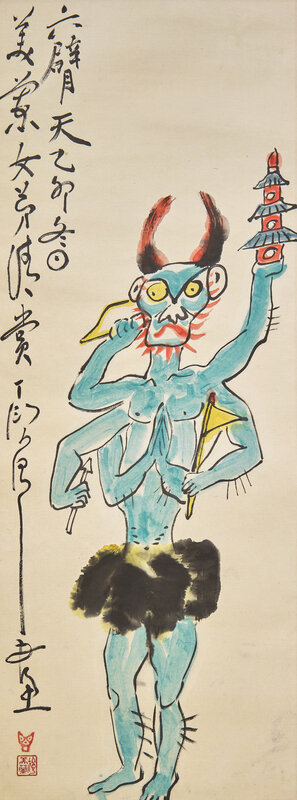 六臂天乙卯冬日
美蘭女弟清賞丁衍庸一